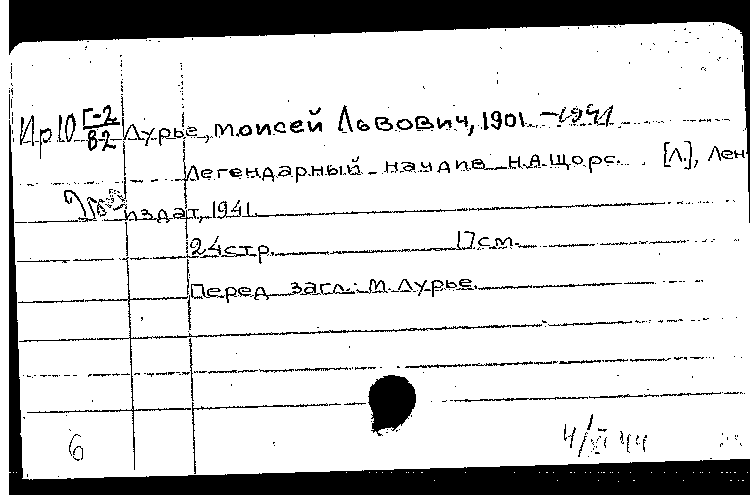 Ир10 Г-2/В2 Лурье, Моисей Львович, 1901 -1941
Легендарный начдив Н.А.Щорс. [Л.], Лен-
издат, 1941.
24стр. 17см.
Перед загл.: М. Лурье.
6 4/XI 44